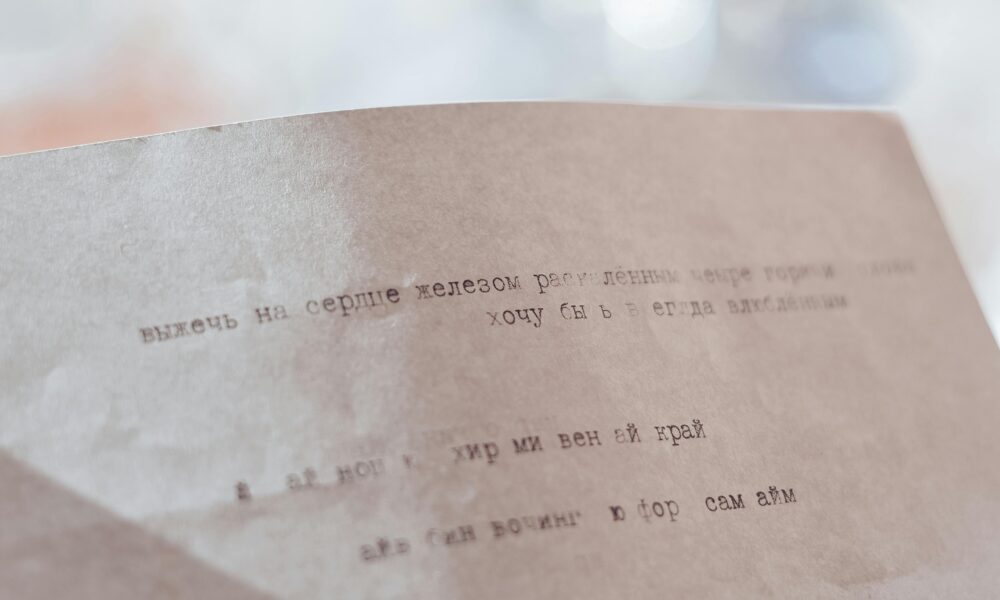 выжечь на сердце железом раскалённым горячи
хочу бы ь в егда влюблённым
ай хир ми вен ай край
айв бин вочинг ю фор сам айм